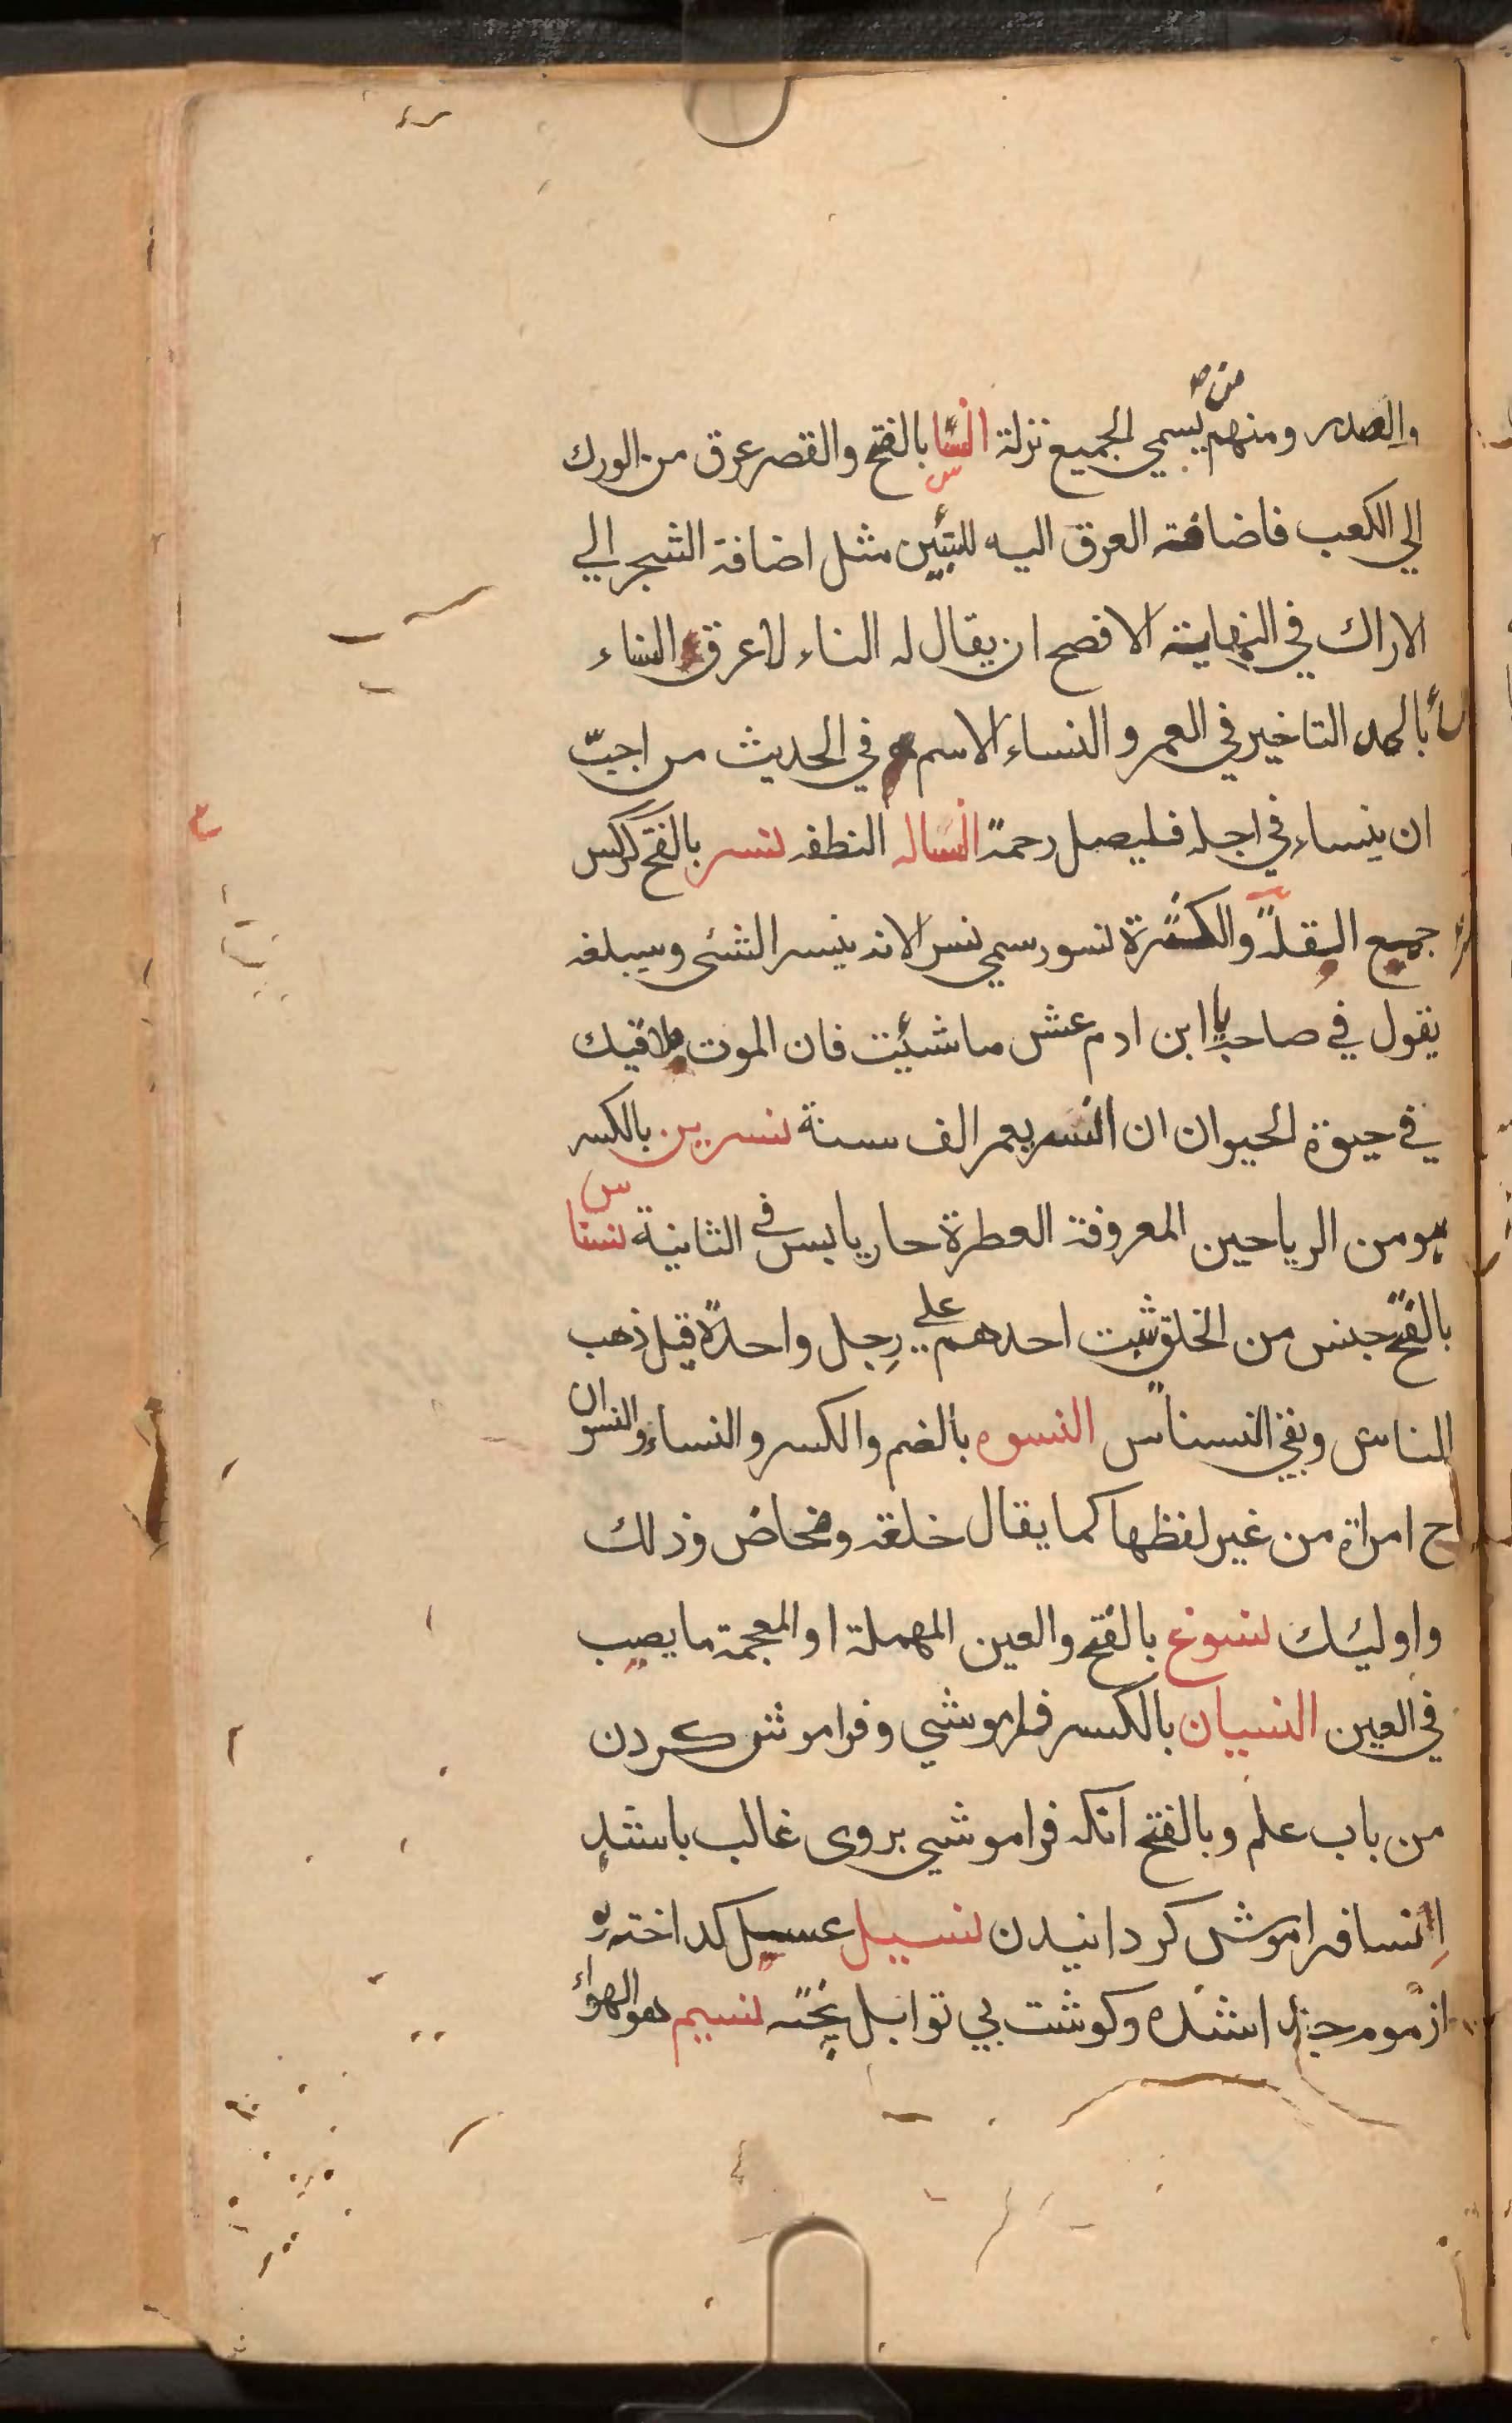 والصدر ومنهم من يسمي الجميع نزلة النسا بالفتح والقصر عرق من الورك
الي الكعب فاضافته العرق اليه للتبين مثل اضافة الشجر الي
الاراك في النهاية الافصح ان يقال له النساء لا عرق النساء
بالمد التاخير في العمر والنساء الاسم في الحديث من احبّ
ان ينساء في اجله فليصل رحمة النساله النطفه نسر بالفتح كركس
جميع القلة والكثرة نسور سمي نسر الانه ينسر الشئ ويبلغه
يقول في صاحبه يا ابن ادم عش ماشئت فان الموت ملاقيك
في حيوة الحيوان ان النسر يعمر الف سنة نسرين بالكسر
هو من الرياحين المعروفة العطرة حار يابس في الثانية نسنا س
بالفتح جنس من الخلق يثبت احدهم علي رجل واحدة قيل ذهب
الناس وبقي النسناس النسوه بالضم والكسر والنساء والنسوان
ج امراة من غير لفظها كما يقال خلفه ومخاض وذلك
واوليئك نسوغ بالفتح والعين المهملة او المعجمة ما يصب
في العين النسيان بالكسر فراموشي وفراموش كردن
من باب علم وبالفتح انكه فراموشي بروى غالب باشد
اانسا فراموش كردانيدن نسيل عسيل كداخته و
از موم جدا شده وكوشت بي توابل پخته نسيم هو الهواء